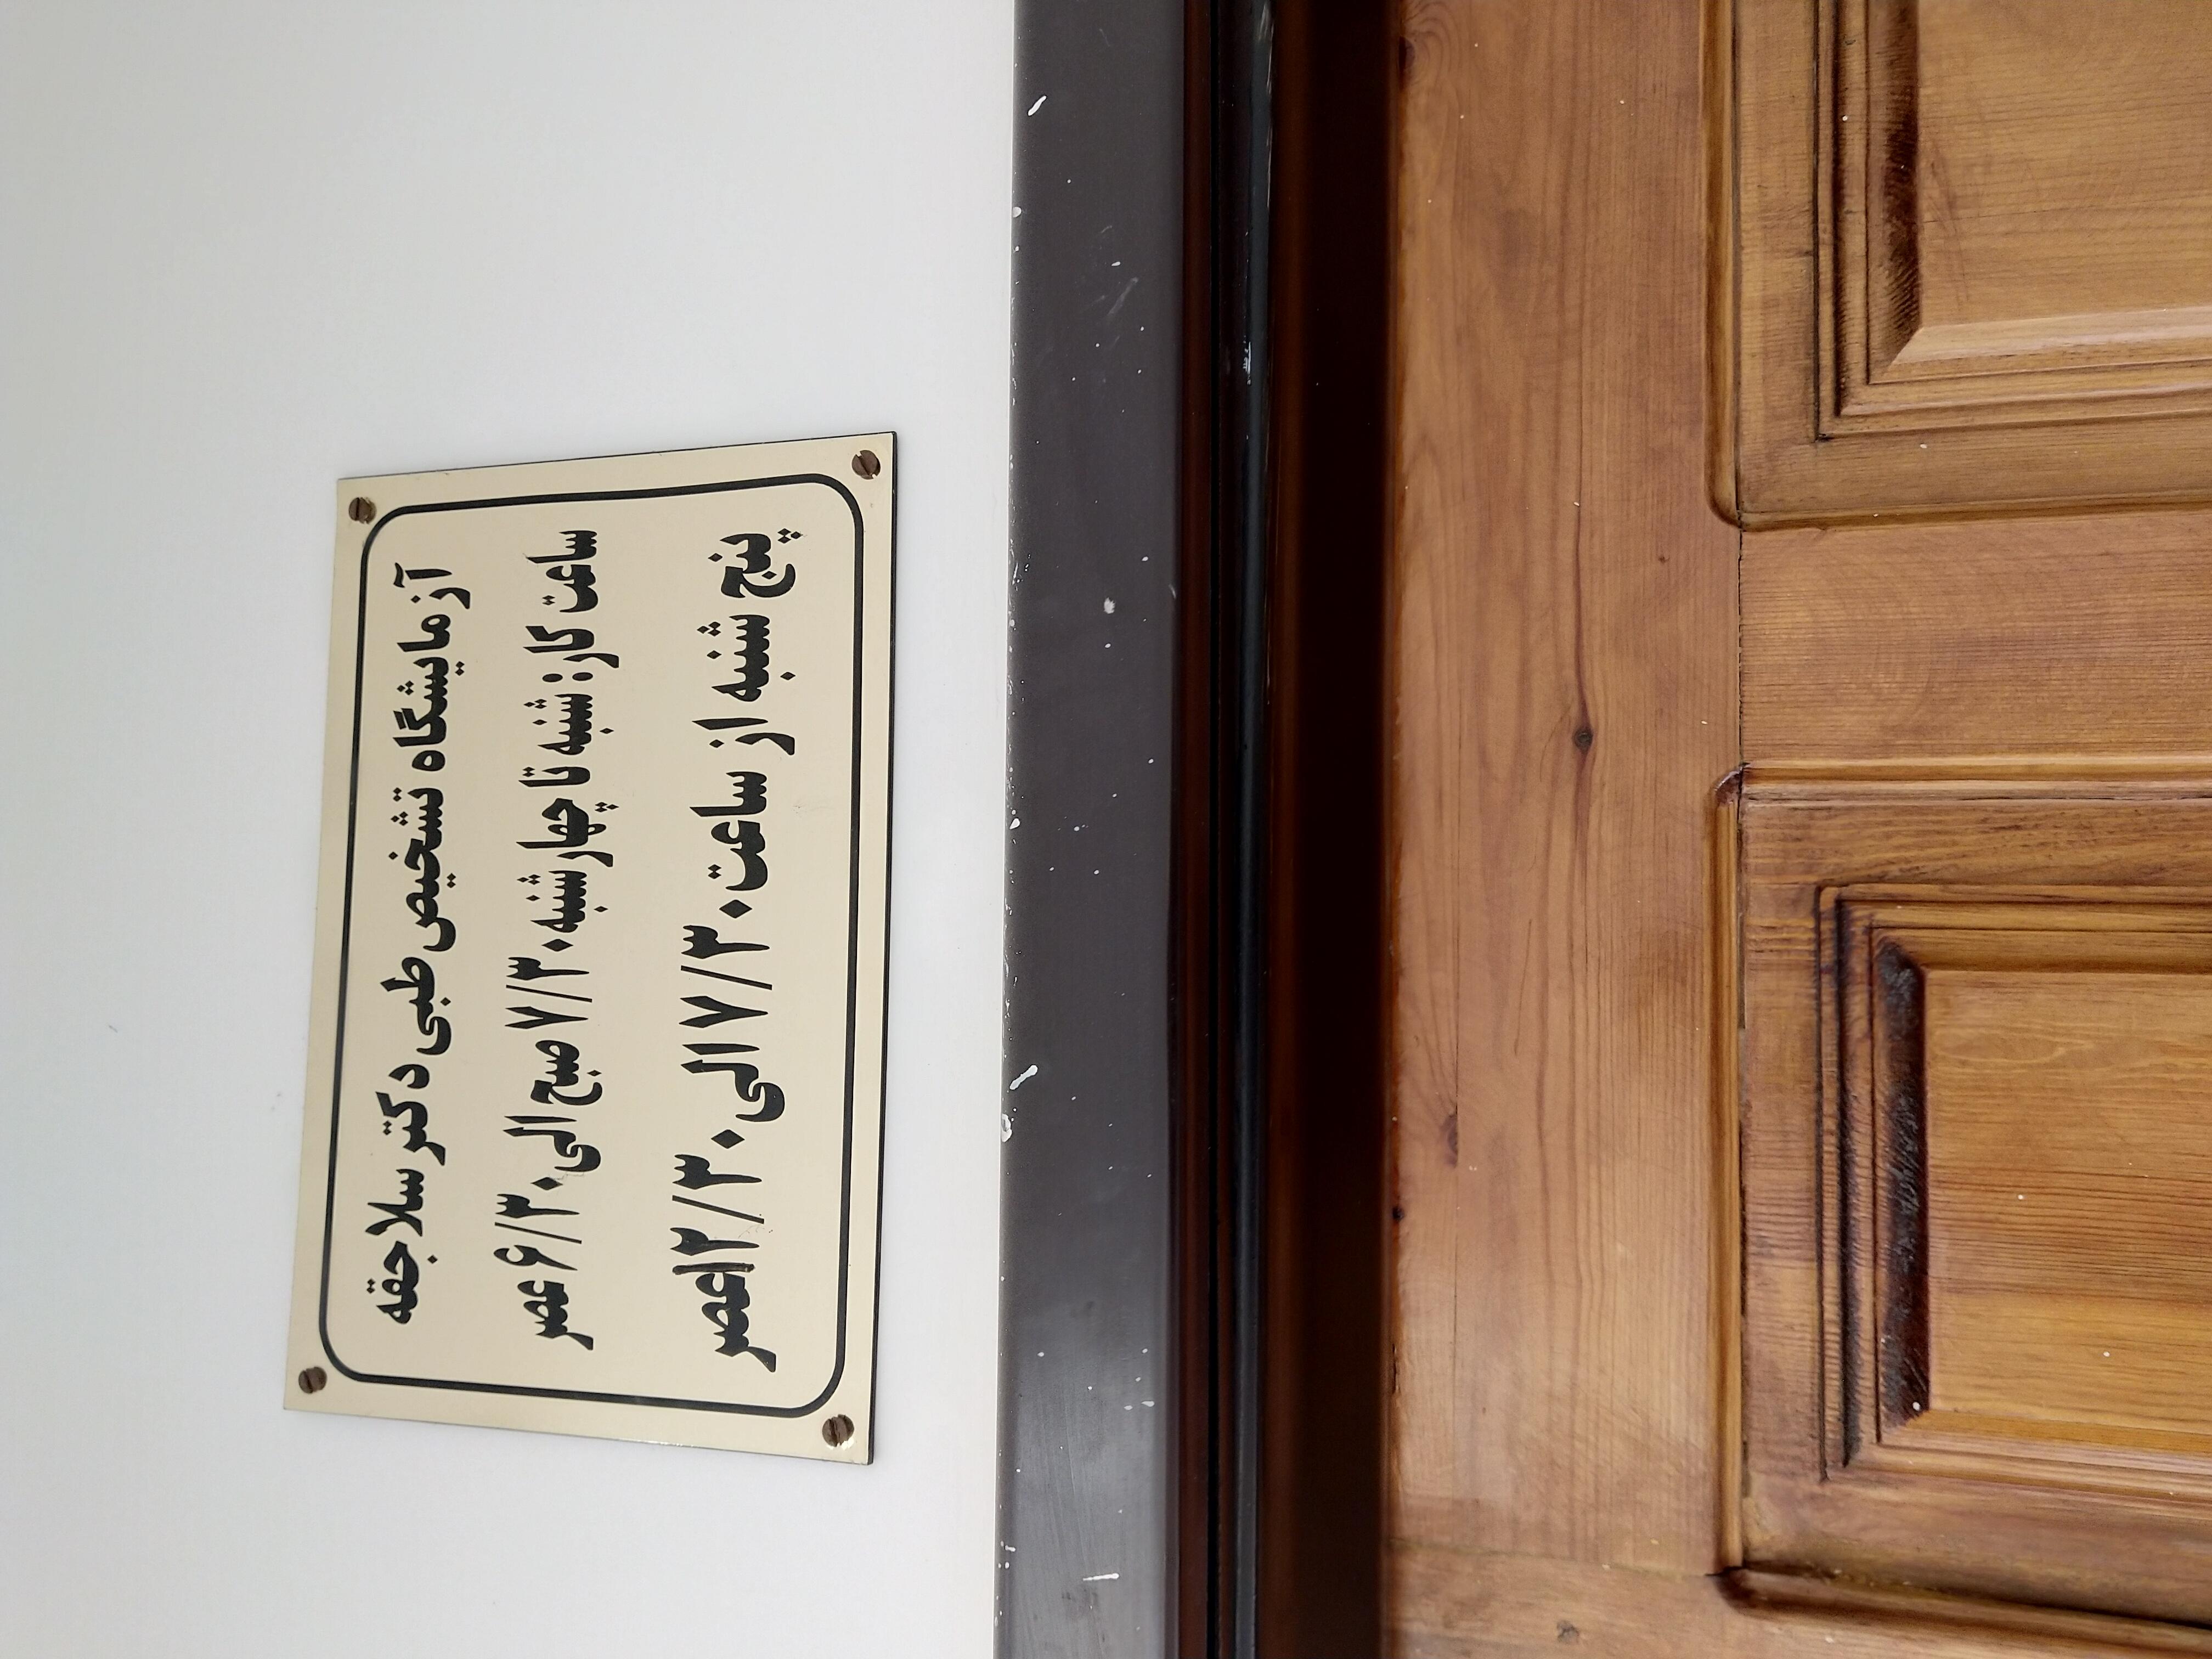 آزمایشگاه تشخیص طبی دکتر سلاجقه
ساعت کار: شنبه تا چهارشنبه ۷/۳۰ صبح الی ۶/۳۰ عصر
پنج شنبه از ساعت ۷/۳۰ الی ۱۲/۳۰ عصر